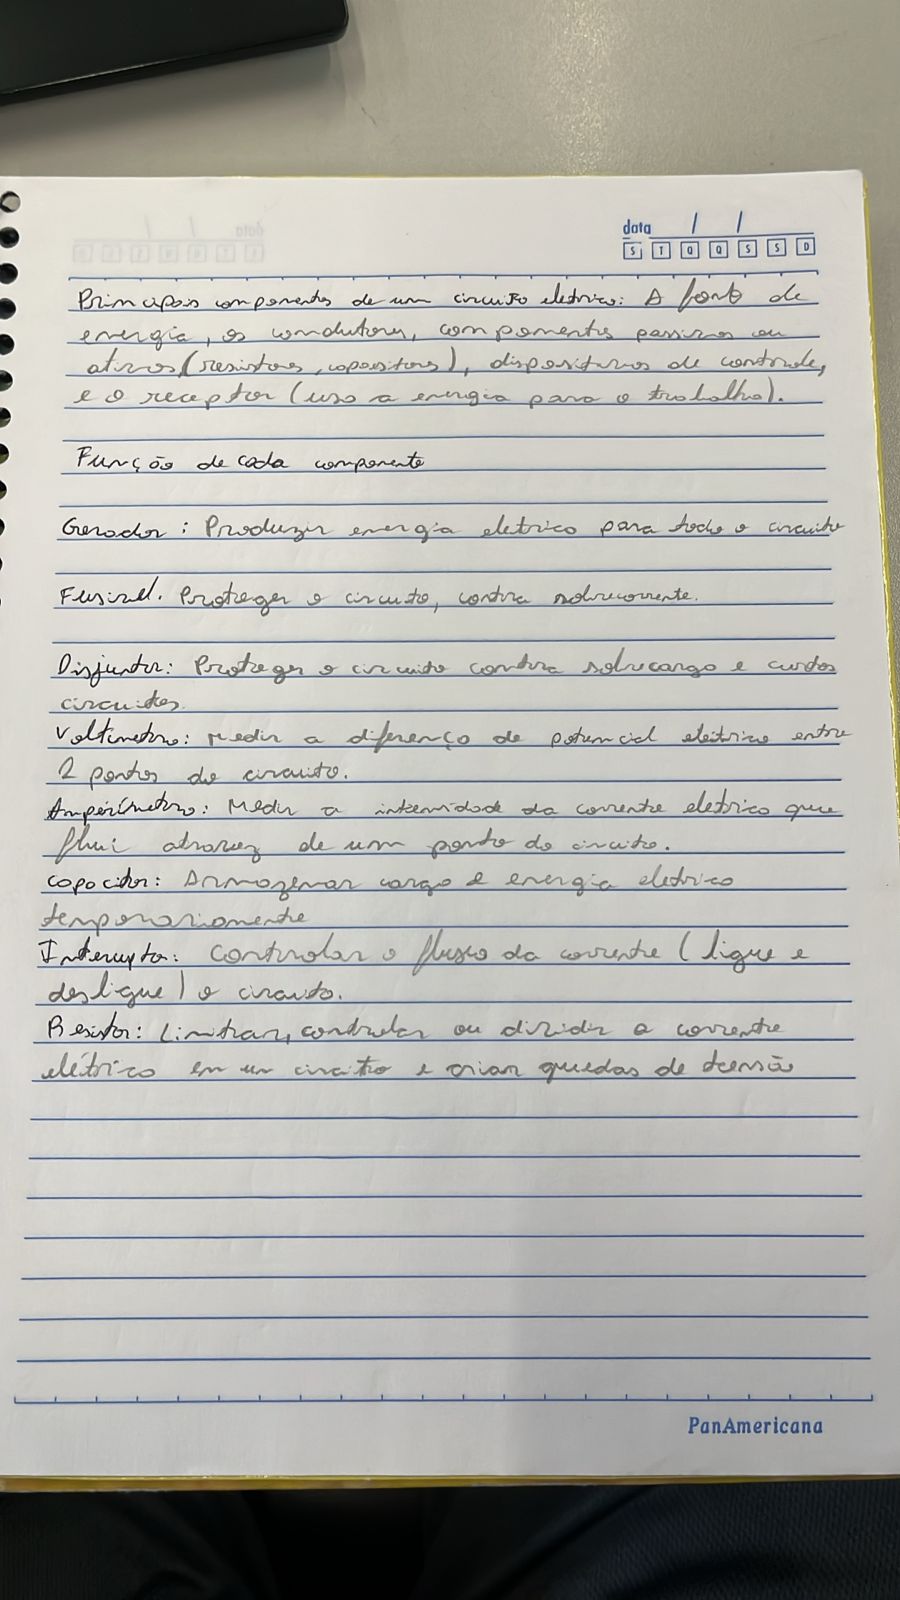 data / /
S T Q Q S S D
Principais componentes de um circuito eletrico: A fonte de
energia, os condutores, componentes passivos ou
ativos (resistores, capacitores), dispositivos de controle,
e o receptor (usa a energia para o trabalho).
Função de cada componente
Gerador: Produzir energia eletrica para todo o circuito
Fusivel. Proteger o circuito, contra sobrecorrente.
Disjuntor: Proteger o circuito contra sobrecarga e curtos
circuitos.
Voltimetro: Medir a diferença de potencial eletrico entre
2 pontos do circuito.
Amperímetro: Medir a intensidade da corrente eletrica que
flui atravez de um ponto do circuito.
Capacitor: Armazenar carga e energia eletrica
temporariamente
Interruptor: Controlar o fluxo da corrente (ligue e
desligue) o circuito.
Resistor: Limitrar, controlar ou dividir a corrente
elétrica em um circuito e criar quedas de tensão
PanAmericana